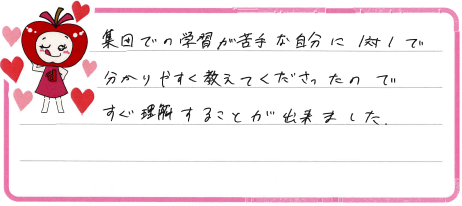 集団での学習が苦手な自分に1対1で
分かりやすく教えてくださったので
すぐ理解することが出来ました.